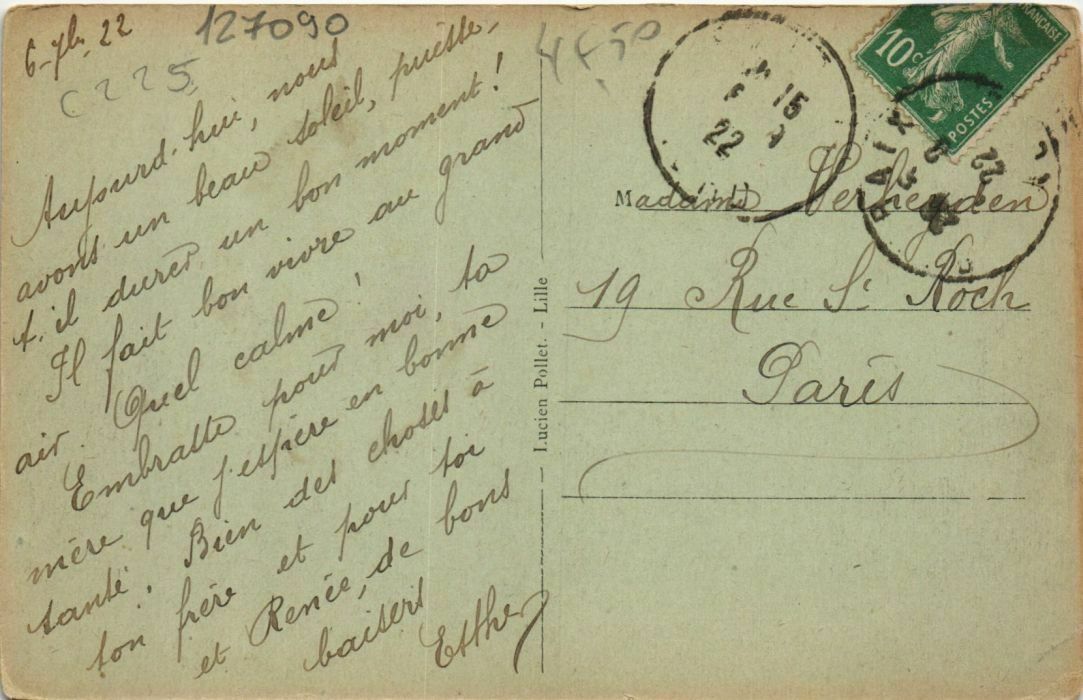 6-7bre 22
127090
C225
4F,50
Aujourd'hui, nous
avons un beau soleil, puisse-
t-il durer un bon moment!
Il fait bon vivre au grand
air. Quel calme!
Embrasse pour moi, ta
mère que j'espère en bonne
santé. Bien des choses à
ton frère et pour toi
et Renée, de bons
baisers
Esther
Lucien Pollet. - Lille
10c
FRANÇAISE
POSTES
15
9
22
22
Madame Verheyden
19 Rue St Roch
Paris